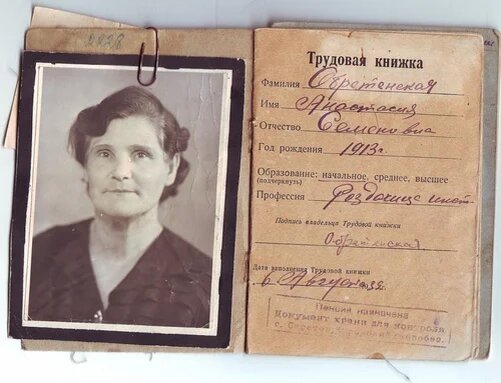 2228
Трудовая книжка
Фамилия Обретенская
Имя Анастасия
Отчество Семеновна
Год рождения 1913г.
Образование: начальное, среднее, высшее
(подчеркнуть)
Профессия Раздатчица инст.
Подпись владельца Трудовой книжки
Обретенская
Дата заполнения Трудовой книжки
6 Августа 39г.
Пенсия назначена
Документ храни для контроля
г. Саратов,